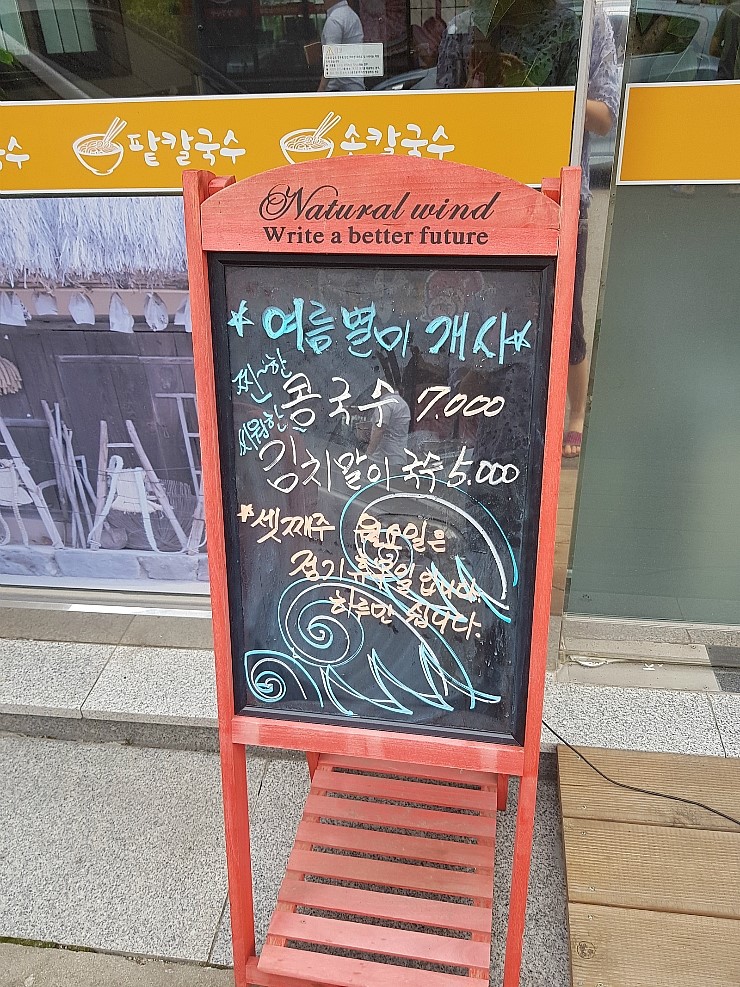 수 팥칼국수 손칼국수
Natural wind
Write a better future
☆여름별미 개시☆
찐~한 콩국수 7.000
시원한 김치말이국수 5.000
*셋째주 월요일은
정기휴무일입니다.
하루만 쉽니다.